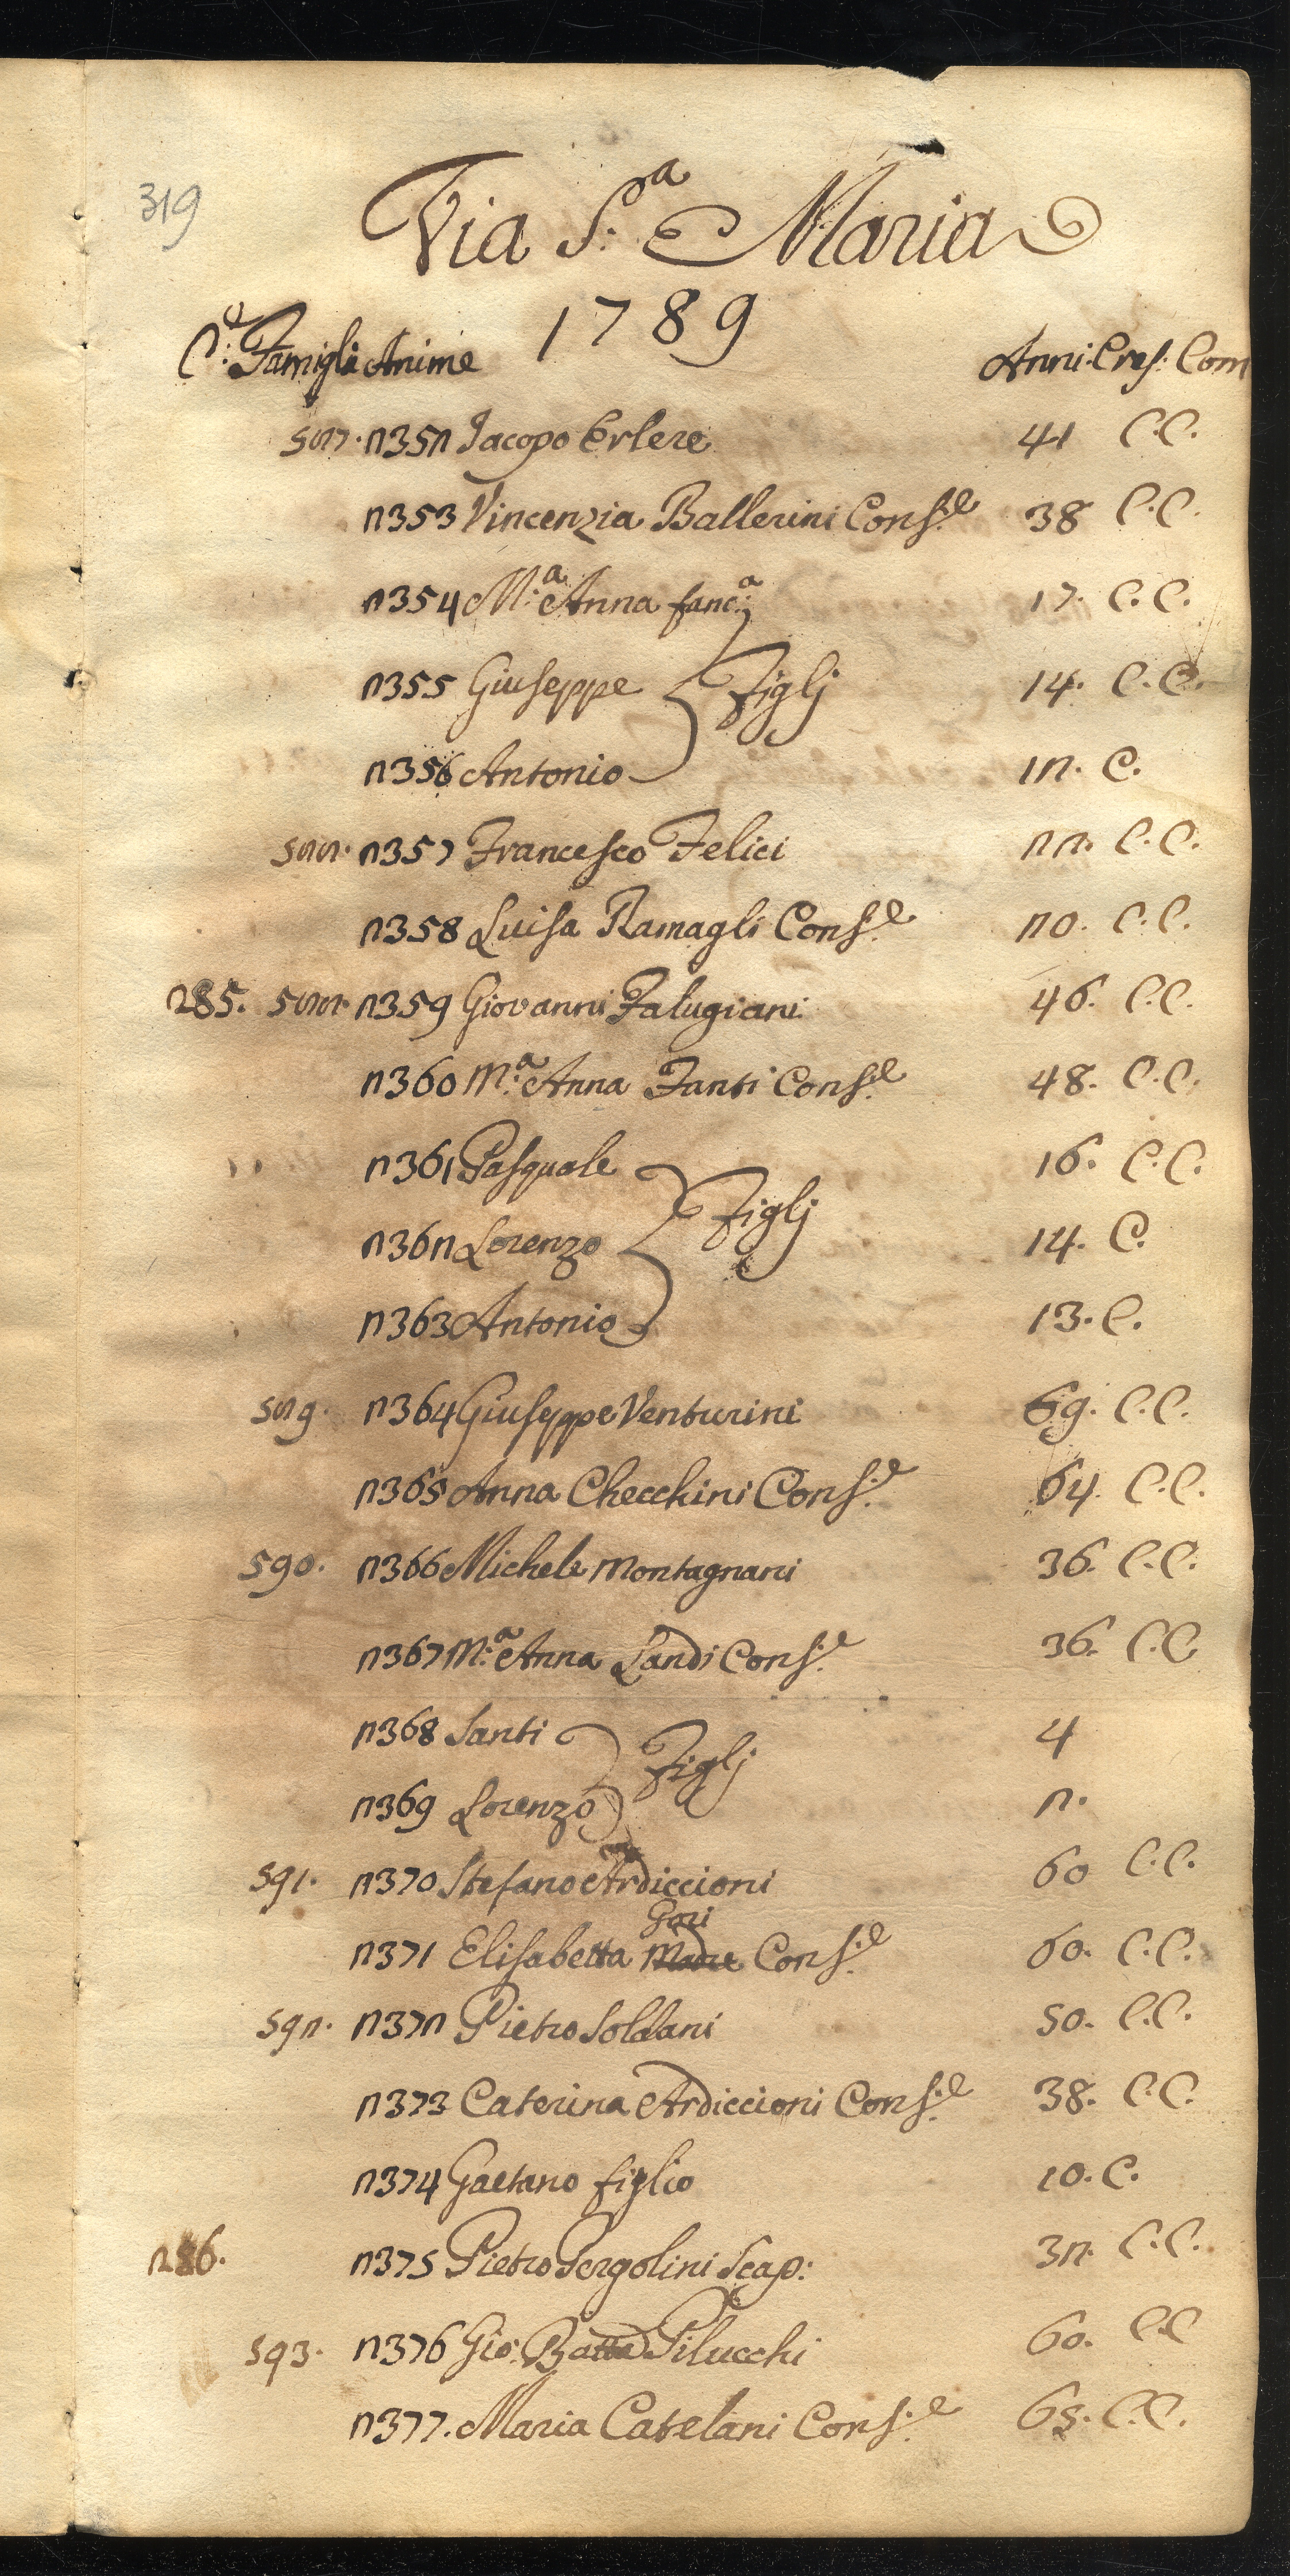 319
Via S.ª Maria
1789
C.e Famigli Anime Anni Cres: Com
2352 Jacopo Erlere 41 C.C.
2353 Vincenzia Ballerini Cons.e 38 C.C.
2354 M.a Anna fanc.a 17. C.C.
2355 Giuseppe Figlj 14. C.C.
2356 Antonio 12. C.
2357 Francesco Felici 22. C.C.
2358 Luisa Ramagli Cons.e 20. C.C.
285. 2359 Giovanni Falugiani 46. C.C.
2360 M.a Anna Fanti Cons.e 48. C.C.
2361 Pasquale 16. C.C.
2362 Lorenzo Figlj 14. C.
2363 Antonio 13. C.
2364 Giuseppe Venturini 69. C.C.
2365 Anna Checchini Cons.e 64. C.C.
590. 2366 Michele Montagnani 36. C.C.
2367 M.a Anna Landi Cons.e 36. C.C.
2368 Santi Figlj 4
2369 Lorenzo 2.
591. 2370 Stefano Ardiccioni 60 C.C.
Gori
2371 Elisabetta Madre Cons.e 60. C.C.
592. 2372 Pietro Soldani 50. C.C.
2373 Caterina Ardiccioni Cons.e 38. C.C.
2374 Gaetano figlio 10. C.
286. 2375 Pietro Pergolini Scap: 32. C.C.
593. 2376 Gio: Batta Pilucchi 60. C.C
2377. Maria Catelani Cons.e 65. C.C.